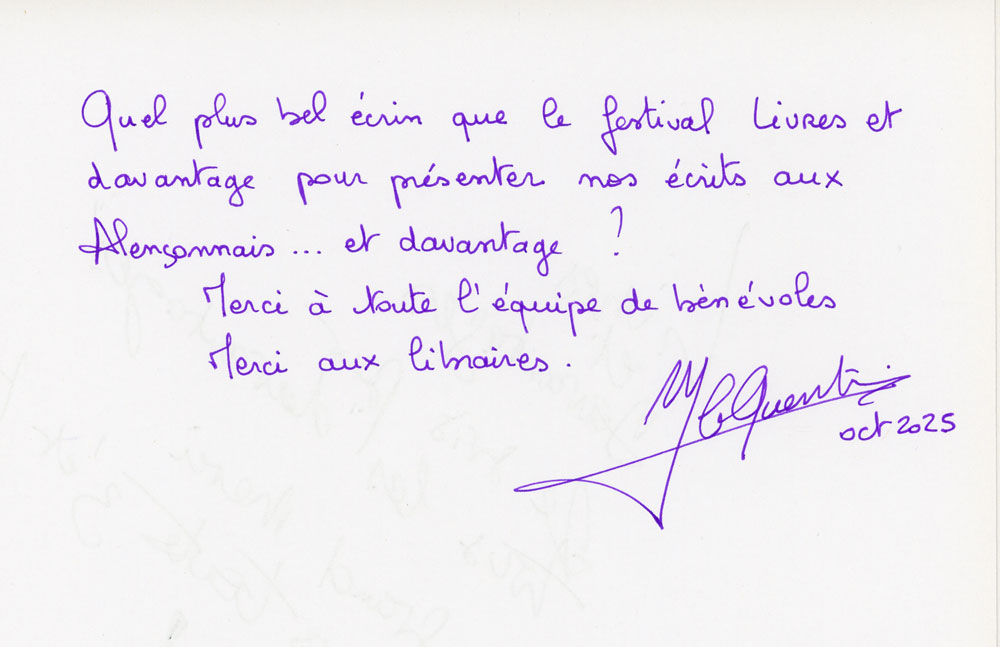 Quel plus bel écrin que le festival Livres et
davantage pour présenter nos écrits aux
Alençonnais... et davantage ?
Merci à toute l'équipe de bénévoles
Merci aux libraires.
oct 2025